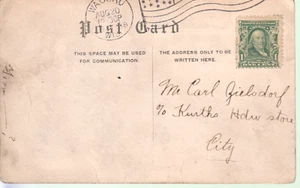 AUG 20
WIS.
Post Card
THIS SPACE MAY BE USED
FOR COMMUNICATION.
THE ADDRESS ONLY TO BE
WRITTEN HERE.
Mr Carl Zielsdorf
c/o Kurths Hdw store
City